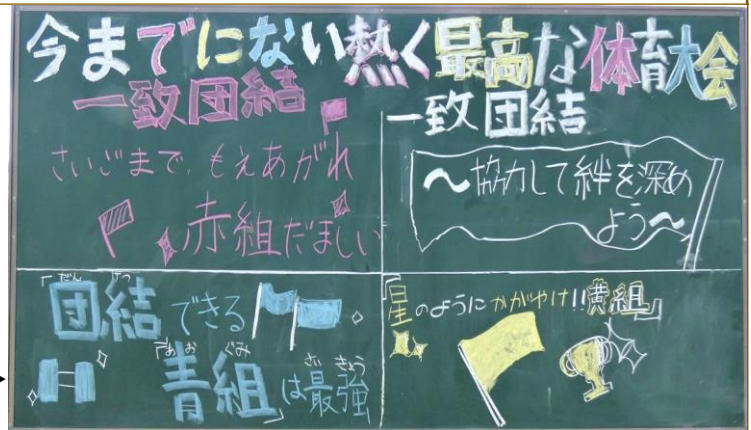 今までにない熱く最高な体育大会
一致団結
さいごまで、もえあがれ
赤組だましい
一致団結
〜協力して絆を深め
よう〜
「団結できる
だんけつ
「青組」は最強
あおぐみ さいきょう
「星のようにかがやけ!!黄組」